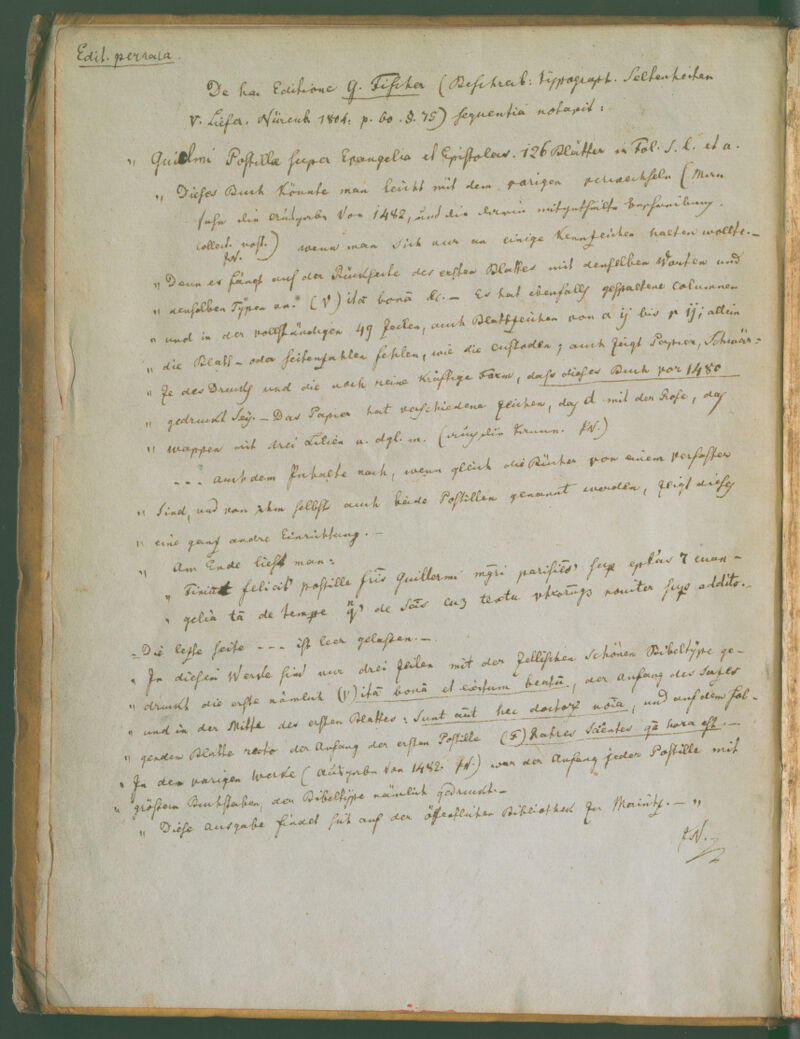 Edit. perrara.
De hac Editione G. Fischer (Beschreib: typograph. Seltenheiten
V. Liefer. Nürenb 1804. p. 60. §. 75) sequentia notavit:
„ Guillmi Postilla super Evangelia et Epistolas. 126 Blätter in Fol. s. l. et a.
„ Dieses Buch könnte man leicht mit dem vorigen verwechseln (Man
sehe die Ausgabe von 1482, und die darin mitgetheilte Beschreibung.
collect. nost.) wenn man sich nur an einige Kennzeichen halten wollte. –
„ Denn es fängt auf der Rückseite des ersten Blattes mit denselben Worten und
„ denselben Typen an: (V)itā bonā &c. – Es hat ebenfalls gespaltene Columnen
„ und in der vollständigen 49 Zeilen, auch Blattzeichen von a ij bis p ij; allein
„ die Blatt- oder Seitenzahlen fehlen, wie die Custoden; auch zeigt Papier, Schwär-
„ ze des Drucks und die noch reine kräftige Form, dass dieses Buch vor 1480
„ gedruckt sey. – Das Papier hat verschiedene Zeichen, das d mit der Rose, das
„ Wappen mit drei Lilien u. dgl. m.
- - - auch dem Inhalte nach, wenn gleich die Bücher von einem Verfasser
„ sind, und von ihm selbst auch beide Postillen genannt worden, zeigt dieses
„ eine ganz andre Einrichtung. –
„ Am Ende liest man:
„ Finiūt felicit' postille fr̄is Guillermi mgr̄i parisiēs' sup ep̄las ⁊ euan-
„ gelia tā de tempe q̄ʒ de sc̄is cuʒ textu noviter sup addito. –
„ Die letzte Seite - - - ist leer gelassen. –
„ In diesem Werke sind nur drei Zeilen mit der Zellischen schönen Bibeltype ge-
„ druckt die erste nämlich (V)itā bonā et exitum beatū, der Anfang des Satzes
„ und in der Mitte des ersten Blattes: Sunt aūt hec doctorʒ noīa, und auf dem fol-
„ genden Blatte recto der Anfang der ersten Postille (F)Ratres Scientes qā hora est. –
„ In dem vorigen Werke (Ausgabe von 1482. ) war der Anfang jeder Postille mit
„ größern Buchstaben, der Bibeltype nämlich gedruckt. –
„ Diese Ausgabe findet sich auf der öffentlichen Bibliothek zu Maintz. – „